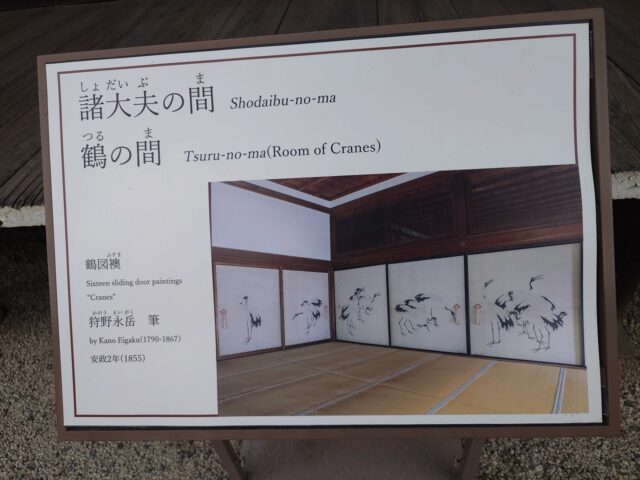 しょだいぶ ま
諸大夫の間 Shodaibu-no-ma
つる ま
鶴の間 Tsuru-no-ma(Room of Cranes)
ふすま
鶴図襖
Sixteen sliding door paintings
"Cranes"
かのう えいがく
狩野永岳 筆
by Kano Eigaku(1790-1867)
安政2年(1855)